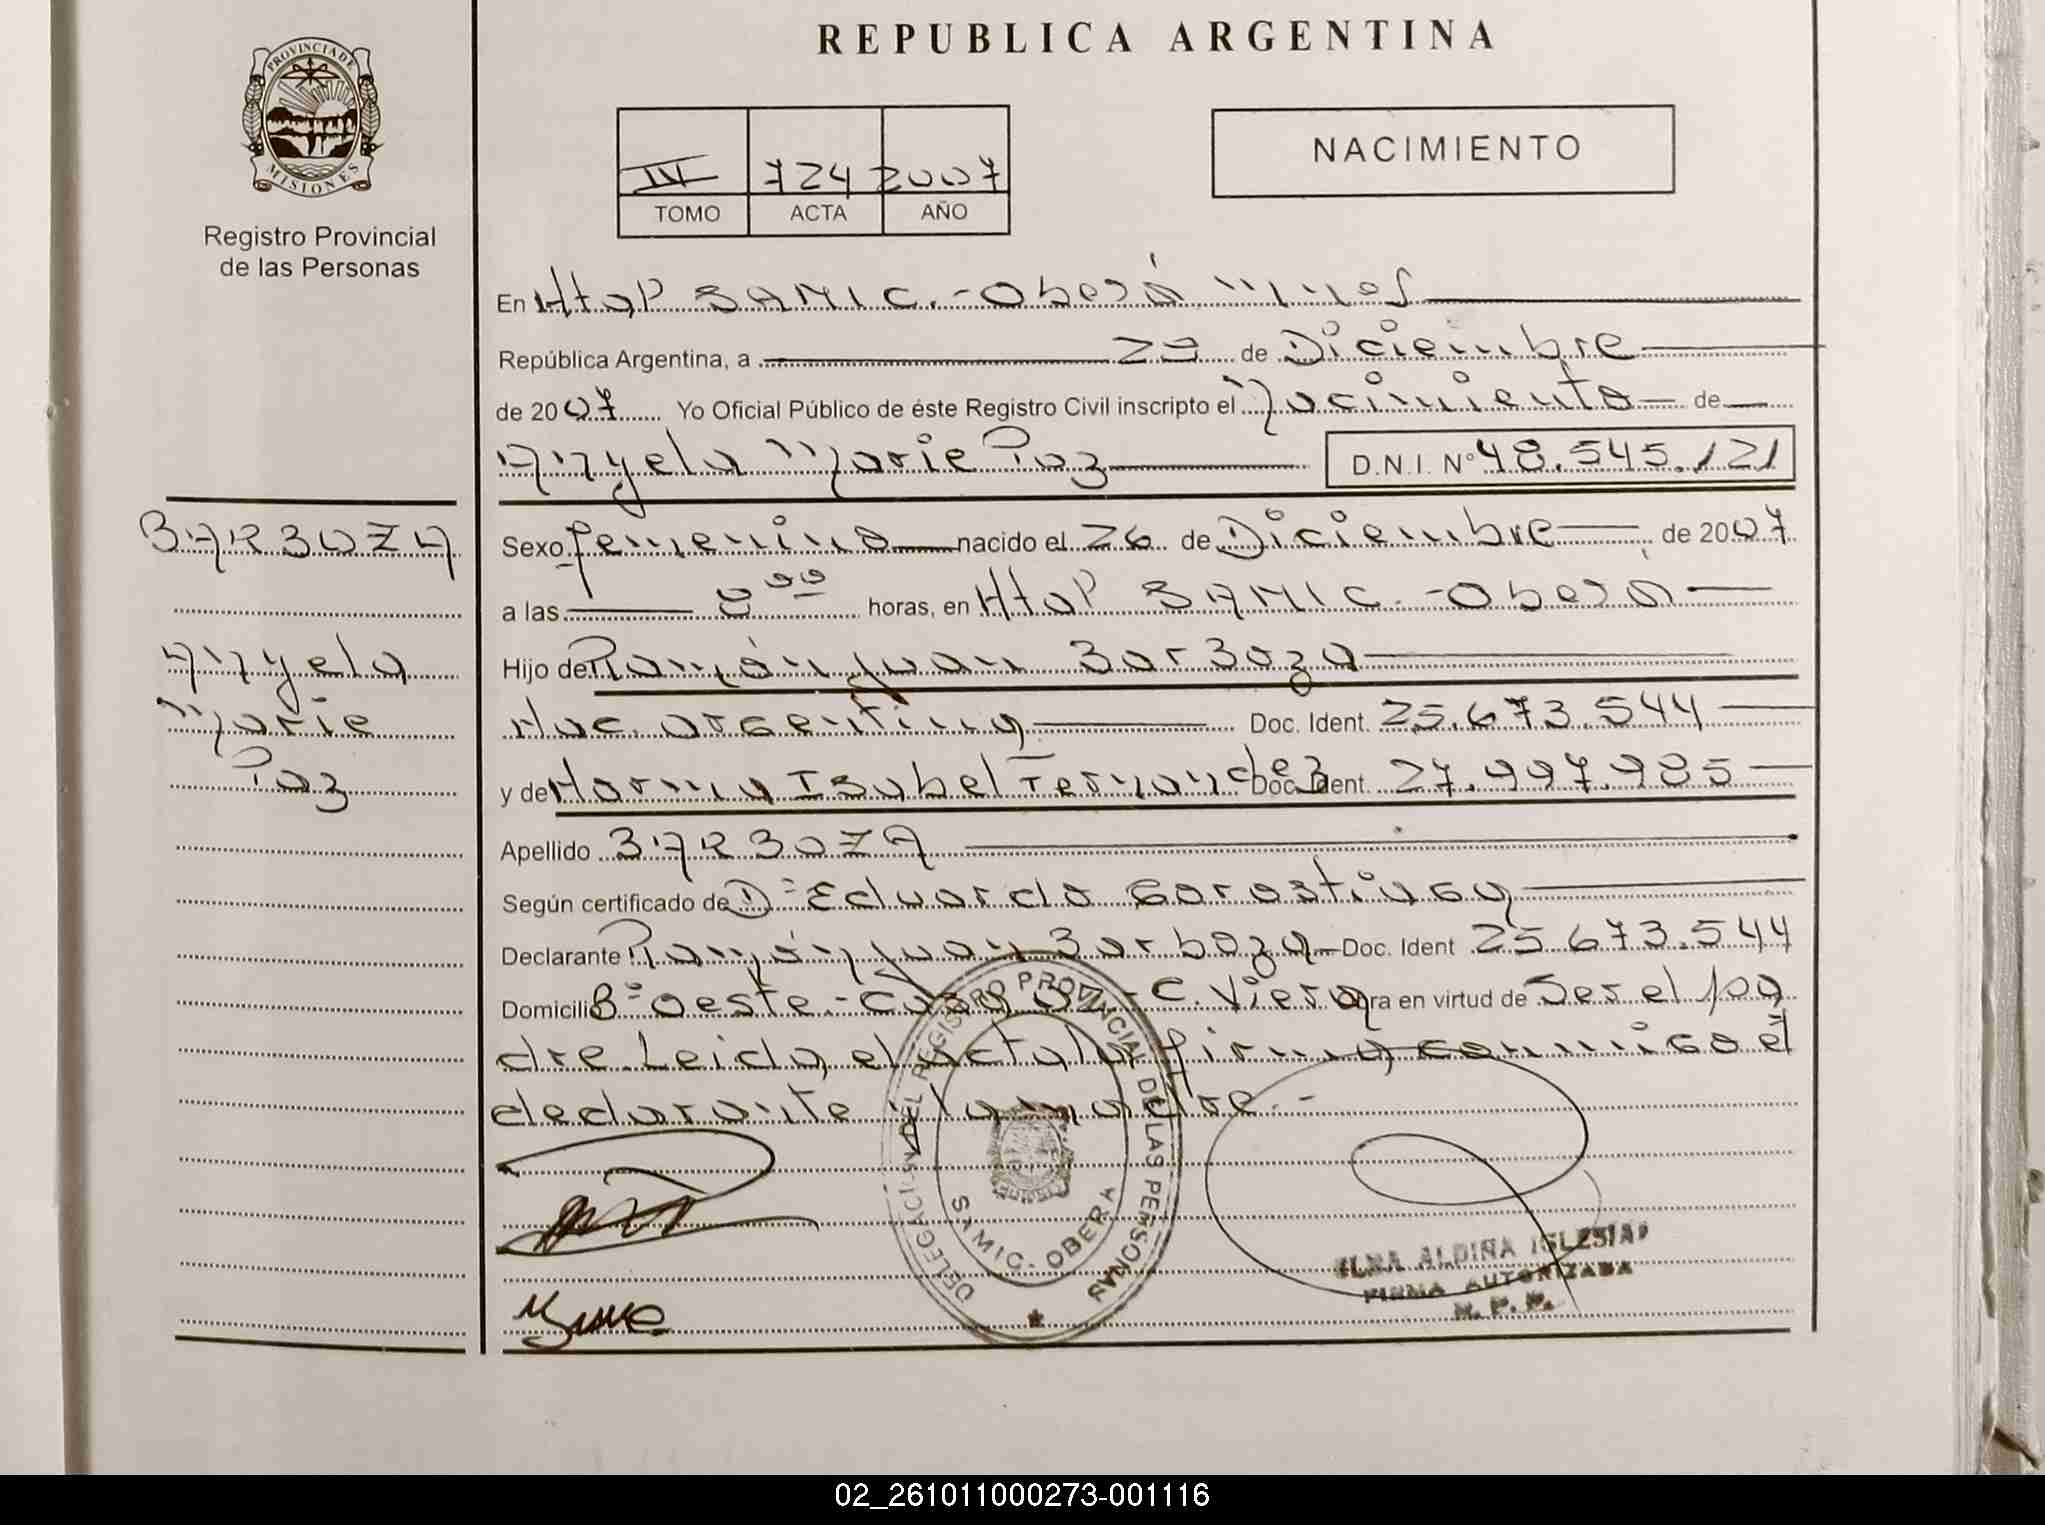 REPUBLICA ARGENTINA
PROVINCIA DE
MISIONES
Registro Provincial
de las Personas
IV 724 2007
TOMO ACTA AÑO
NACIMIENTO
En Htal SAMIC.-Oberá Mnes
República Argentina, a 29 de Diciembre
de 2007 Yo Oficial Público de éste Registro Civil inscripto el Nacimiento de
Angela Marie Paz D.N.I. N° 48.545.121
BARBOZA
Angela
Marie
Paz
Sexo femenino nacido el 26 de Diciembre de 2007
a las 8 00 horas, en Htal SAMIC.-Oberá
Hijo de Ramón Juan Barboza
Nac. argentina Doc. Ident. 25.673.544
y de Norma Isabel Fernandez Doc. Ident. 27.997.985
Apellido BARBOZA
Según certificado de D: Eduardo Garastiagy
Declarante Ramón Juan Barboza Doc. Ident 25.673.544
Domicili B° Oeste.- C. Viera ra en virtud de Ser el pa
dre. Leida el acta la firma conmigo el
declarante y la madre.-
DELEGACION DEL REGISTRO PROVINCIAL DE LAS PERSONAS
SAMIC - OBERA
ILMA ALDINA IGLESIAS
FIRMA AUTORIZADA
R. P. P.
02_261011000273-001116